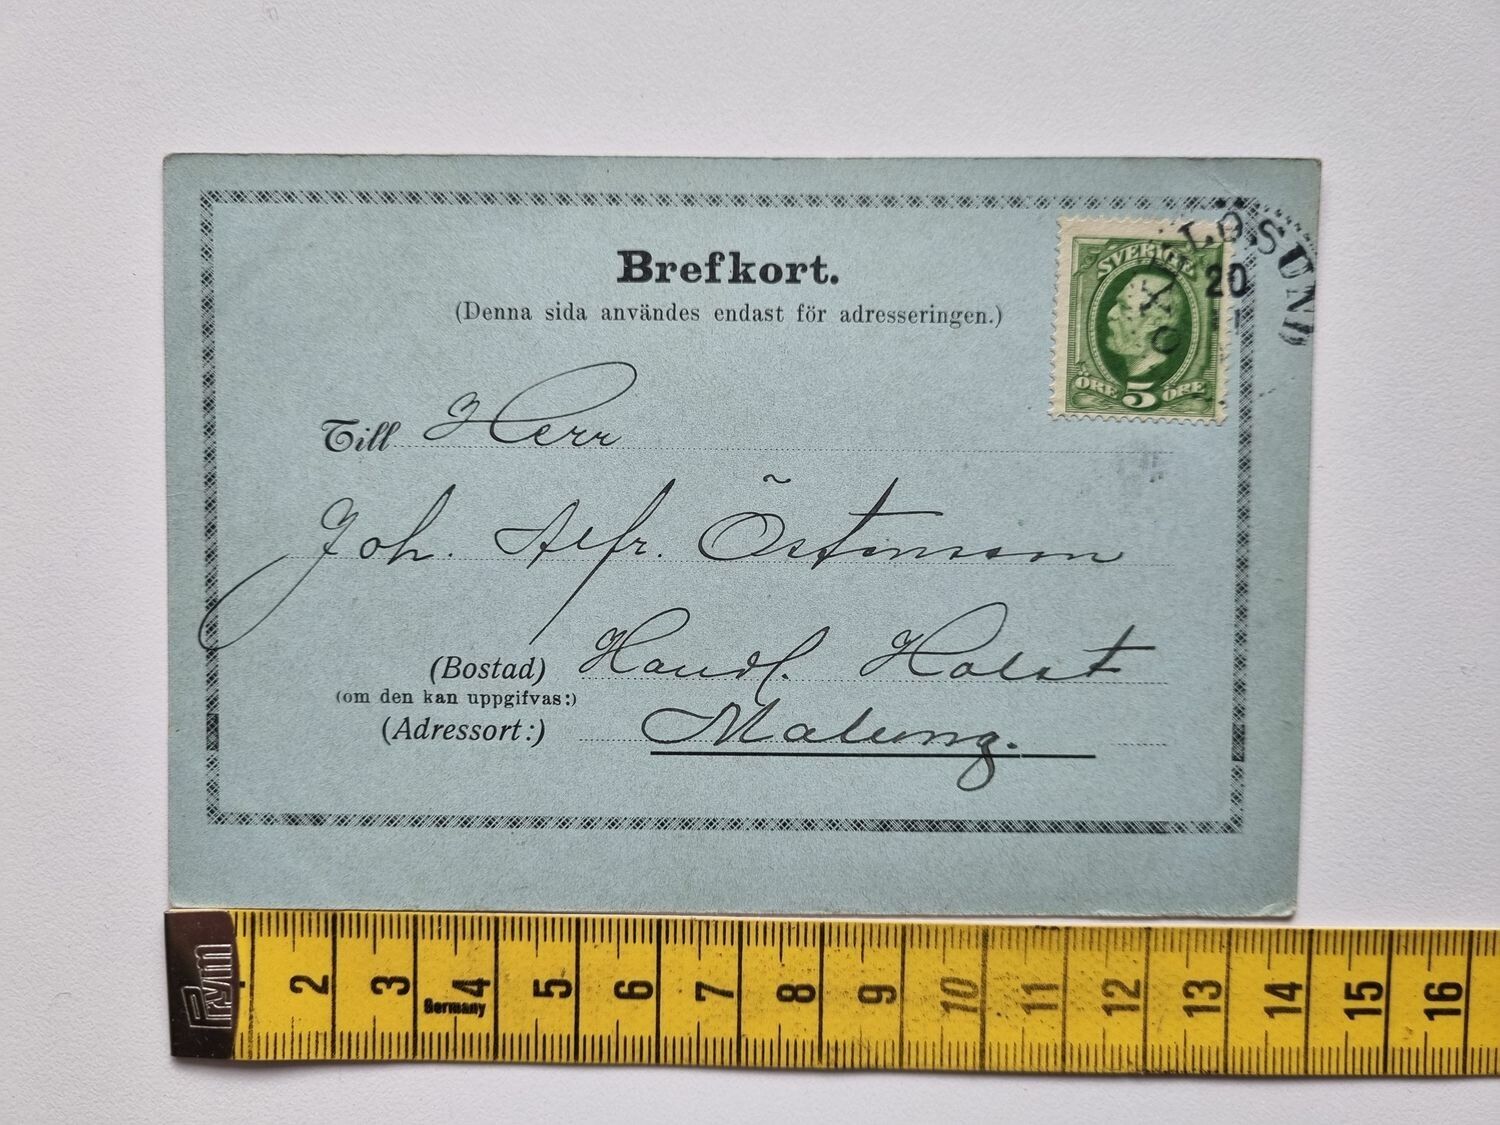 Brefkort.
(Denna sida användes endast för adresseringen.)
SVERIGE
ÖRE 5 ÖRE
OXELÖSUND
20
Till Herr
Joh. Alfr. Östensson
(Bostad) Handl. Holst
(om den kan uppgifvas:)
(Adressort:) Malung.
Prym
2 3 4 5 6 7 8 9 10 11 12 13 14 15 16
Germany